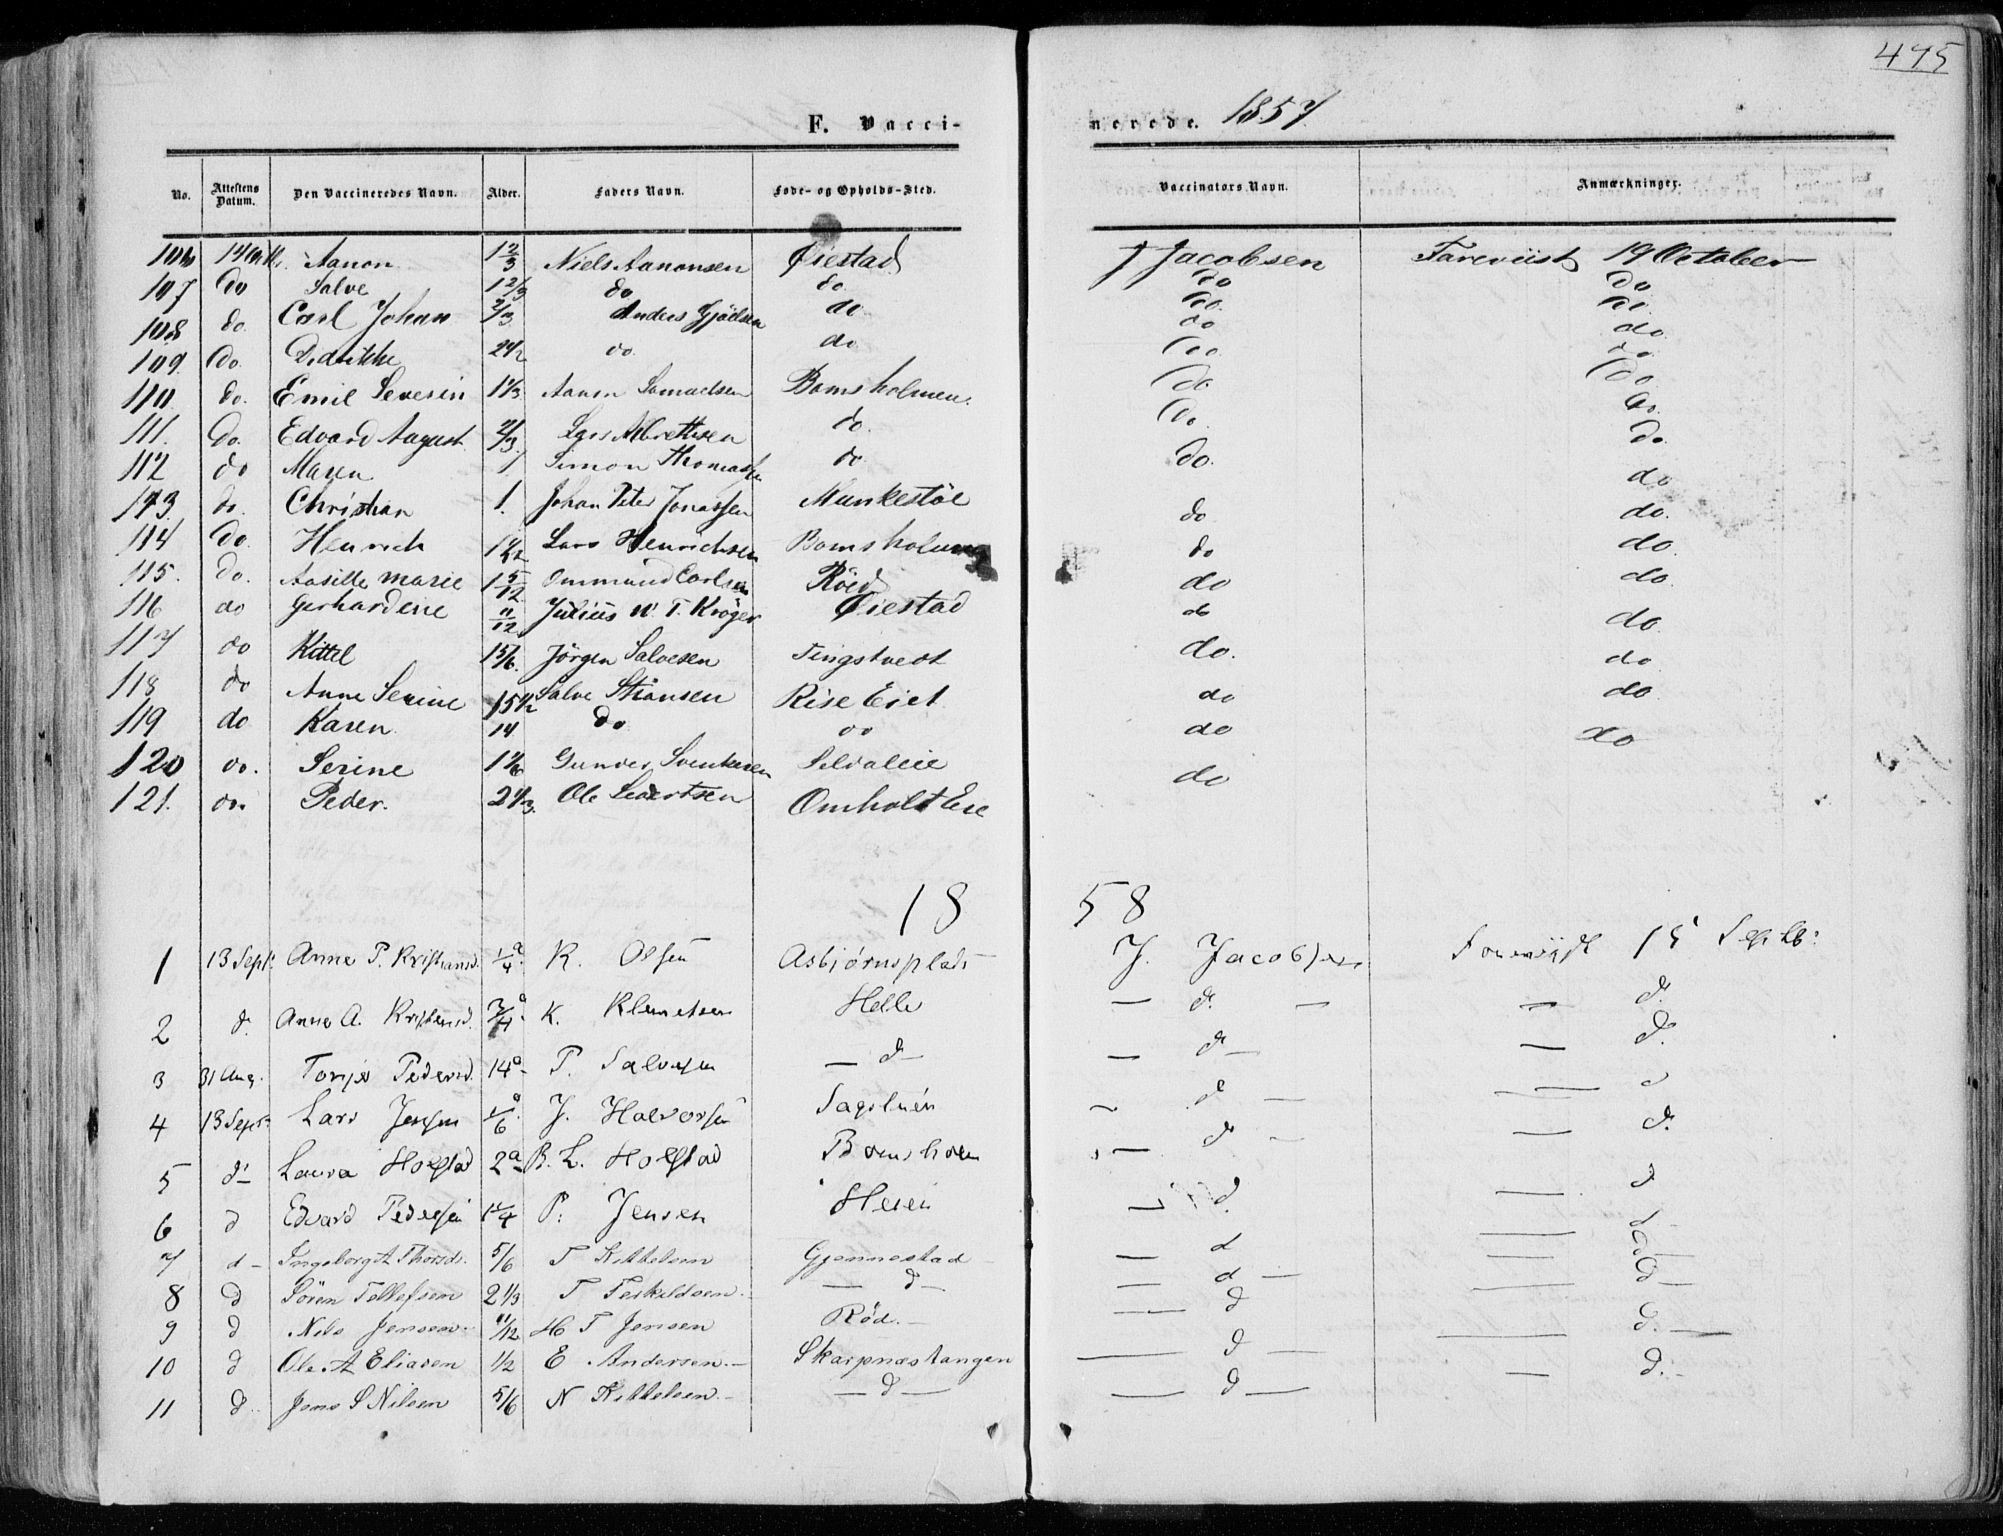 475
F. Vacci-nerede. 1857
No. Attestens Datum. Den Vaccineredes Navn. Alder. Faders Navn. Føde- og Opholds-Sted. Vaccinators Navn. Anmærkninger.
106 Aanon 1 2/3 Niels Aanonsen Øiestad J Jacobsen Foreviist 19 October
107 do Salve 1 2/3 do do do do
108 do. Carl Johan 2/3 Anders Gjöelsen do do do
109. do. Didrikke 2 1/2 do. do do do
110. do. Emil Severin 1 1/3 Aanon Samuelsen Bomsholmen. do do
111. do. Edvard August 2/3. Lars Albrethsen do. do. do.
112 do Maren 1 Simon Thomassen do do. do
113 do. Christian 1. Johan Peter Jonassen Munkestöl do do.
114 do. Henrich Lars Henrichsen Bomsholmen do do.
115. do. Aasille Marie 1 5/12 Ommund Carlsen Röed do do.
116 do Gerhardine 11/12 Julius W. T. Kröger Øiestad do do.
117 do Kittel 1 5/6. Jörgen Salvesen Tingstvedt do. do
118 do Anne Serine 15 1/2 Salve Stiansen Rise Eiet do do
119 do Karen 14 do do do do
120 do. Serine 1 1/6 Gunder Svenkesen do
121. do. Peder. 2 1/3. Ole Sivertsen Omholt Eie
18 58
1 13 Sept: Anne P. Kristiansd. 1/4 a K. Olsen Asbjørnsplads J. Jacobsen Foreviist 15 Septb:
2 d. Anne A. Kristensd. 3/4 a K. Klemetsen Helle — d. — — d.
3 31 Aug. Torjer Pedersd. 14 a P. Salvesen — d — — d — — d.
4 13 Sept: Lars Jensen 1/6 a J. Halvorsen — d — — d
5 d — Laura Holstad 2 a B. L. Holstad Bomsholm — d — — d.
6 d Edvard Pedersen 1 1/4 P. Jensen — d. — d
7 d — Ingeborg A Thorsd. 5/6 T Kittelsen Gjennestad — d — d —
8 d Sören Tellefsen 2 1/3 T Teskildsen — d — — d — — d
9 d Nils Jensen 11/12 H T Jensen Rød. — — d — d —
10 d Ole A Eliasen 1/2 E Andersen — Skarpnæstangen — d — — d. —
11 d Jens S Nilsen 5/6 N Kittelsen — — d — — d — — d. —